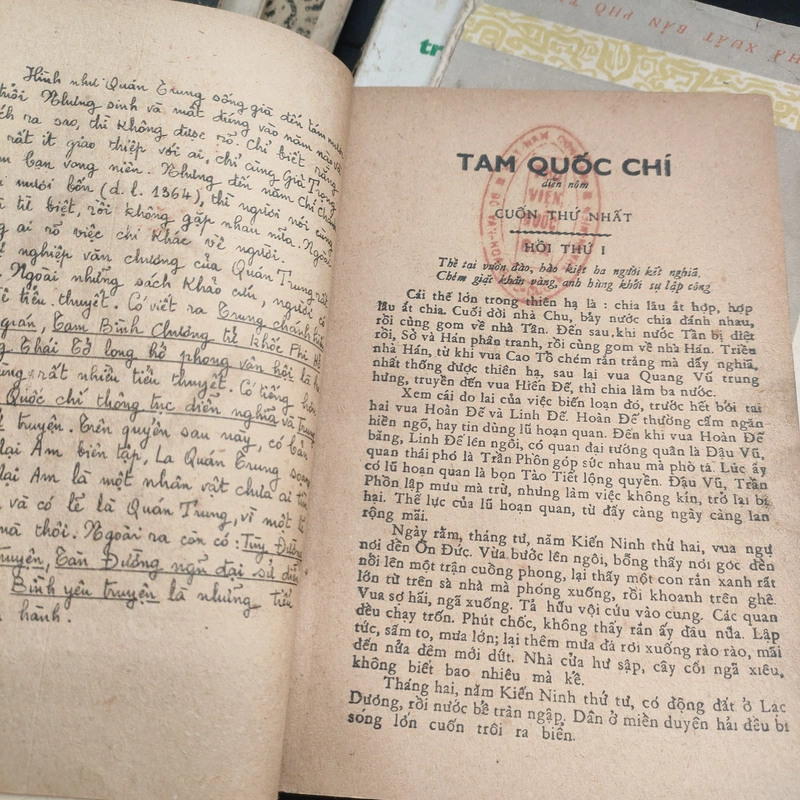 Hình như Quán Trung sống già đến tám mươi
tuổi. Nhưng sinh và mất đúng vào năm nào và
ra sao, thì không được rõ. Chỉ biết rằng
rất ít giao thiệp với ai, chỉ cùng Giả Trọng
bạn vong niên. Nhưng đến năm Chí Chính
mươi bốn (d. l. 1364), thì người nói cùng
từ biệt, rồi không gặp nhau nữa. Ngoài
ai rõ việc chi khác về người.
nghiệp văn chương của Quán Trung rất
Ngoài những sách khảo cứu, người có
tiểu thuyết. Có viết ra Trung chánh hiếu
gián, Tam Bình Chương tử khốc Phi Hổ
Thái Tổ long hổ phong vân hội là
rất nhiều tiểu thuyết. Có tiếng hơn
Quốc chí thông tục diễn nghĩa và Trung
truyện. Trên quyển sau này, có bản
Nại Am biên tập, La Quán Trung soạn
Nại Am là một nhân vật chưa ai
và có lẽ là Quán Trung, vì một
mà thôi. Ngoài ra còn có: Tùy Đường
truyện, Tàn Đường ngũ đại sử diễn
Bình yêu truyện là những tiểu
hành.
NHÀ XUẤT BẢN PHỔ T
tr
TAM QUỐC CHÍ
diễn nôm
CUỐN THỨ NHẤT
HỒI THỨ I
Thề tại vườn đào, hào kiệt ba người kết nghĩa,
Chém giặt khăn vàng, anh hùng khởi sự lập công
Cái thế lớn trong thiên hạ là : chia lâu ắt hợp, hợp
lâu ắt chia. Cuối đời nhà Chu, bảy nước chia đánh nhau,
rồi cùng gom về nhà Tần. Đến sau khi nước Tần bị diệt
rồi, Sở và Hán phân tranh, rồi cùng gom về nhà Hán. Triều
nhà Hán, từ khi vua Cao Tổ chém rắn trắng mà dấy nghĩa,
nhất thống được thiên hạ, sau lại vua Quang Vũ trung
hưng, truyền đến vua Hiến Đế, thì chia làm ba nước.
Xem cái do lai của việc biến loạn đó, trước hết bởi tại
hai vua Hoàn Đế và Linh Đế. Hoàn Đế thường cấm ngăn
hiền ngõ, hay tin dùng lũ hoạn quan. Đến khi vua Hoàn Đế
băng, Linh Đế lên ngôi, có quan đại tướng quân là Đậu Vũ,
quan thái phó là Trần Phồn góp sức nhau mà phò tá. Lúc ấy
có lũ hoạn quan là bọn Tào Tiết lộng quyền. Đậu Vũ, Trần
Phồn lập mưu mà trừ, nhưng làm việc không kín, trở lại bị
hại. Thế lực của lũ hoạn quan, từ đấy càng ngày càng lan
rộng mãi.
Ngày rằm, tháng tư, năm Kiến Ninh thứ hai, vua ngự
nơi đền Ôn Đức. Vừa bước lên ngôi, bỗng thấy nơi góc đền
nổi lên một trận cuồng phong, lại thấy một con rắn xanh rất
lớn từ trên sà nhà mà phóng xuống, rồi khoanh trên ghế.
Vua sợ hãi, ngã xuống. Tả hữu vội cứu vào cung. Các quan
đều chạy trốn. Phút chốc, không thấy rắn ấy đâu nữa. Lập
tức, sấm to, mưa lớn; lại thêm mưa đá rơi xuống rào rào, mãi
đến nửa đêm mới dứt. Nhà cửa hư sập, cây cối ngã xiêu,
không biết bao nhiêu mà kể.
Tháng hai, năm Kiến Ninh thứ tư, có động đất ở Lạc
Dương, rồi nước bể tràn ngập. Dân ở miền duyên hải đều bị
sóng lớn cuốn trôi ra biển.